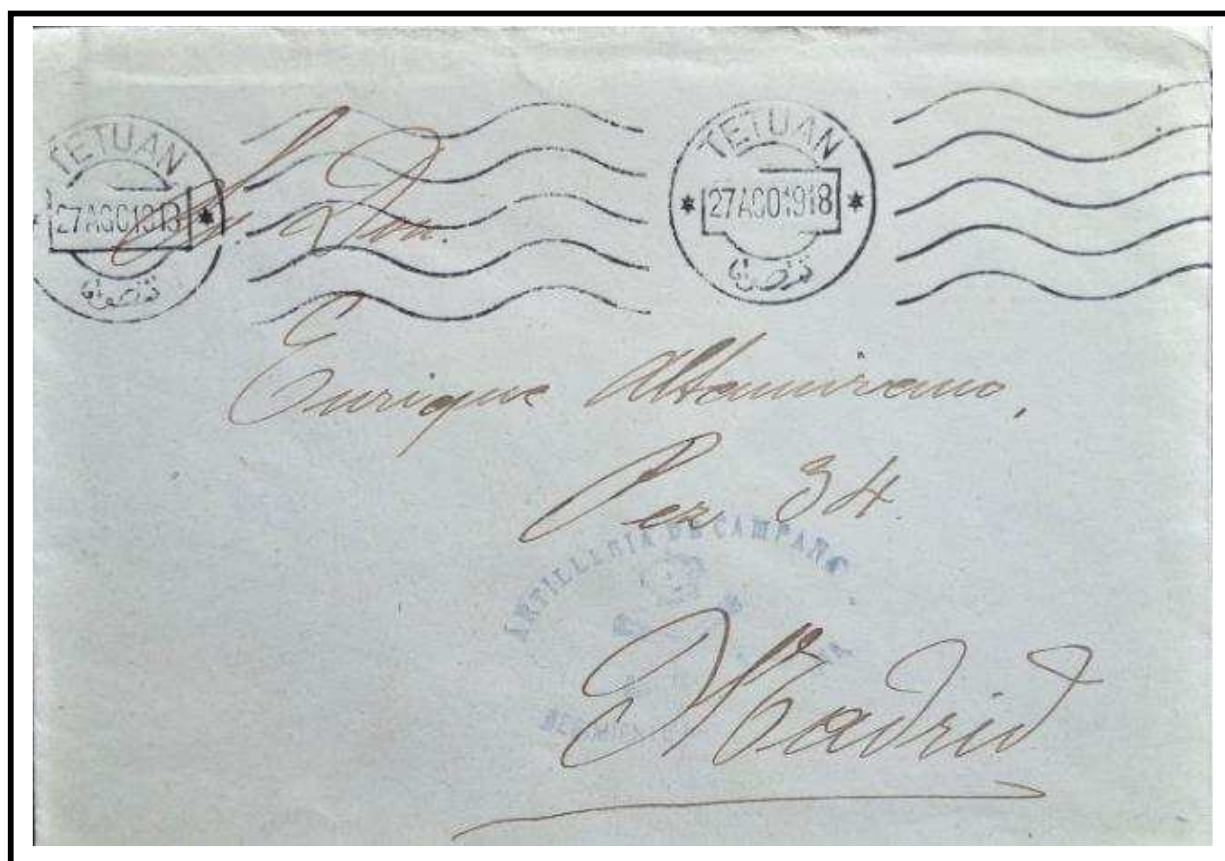 TETUAN
27AGO1918
TETUAN
27AGO1918
Sr. Don.
Enrique Altamirano,
Pez 34.
ARTILLERIA DE CAMPAÑA
Madrid